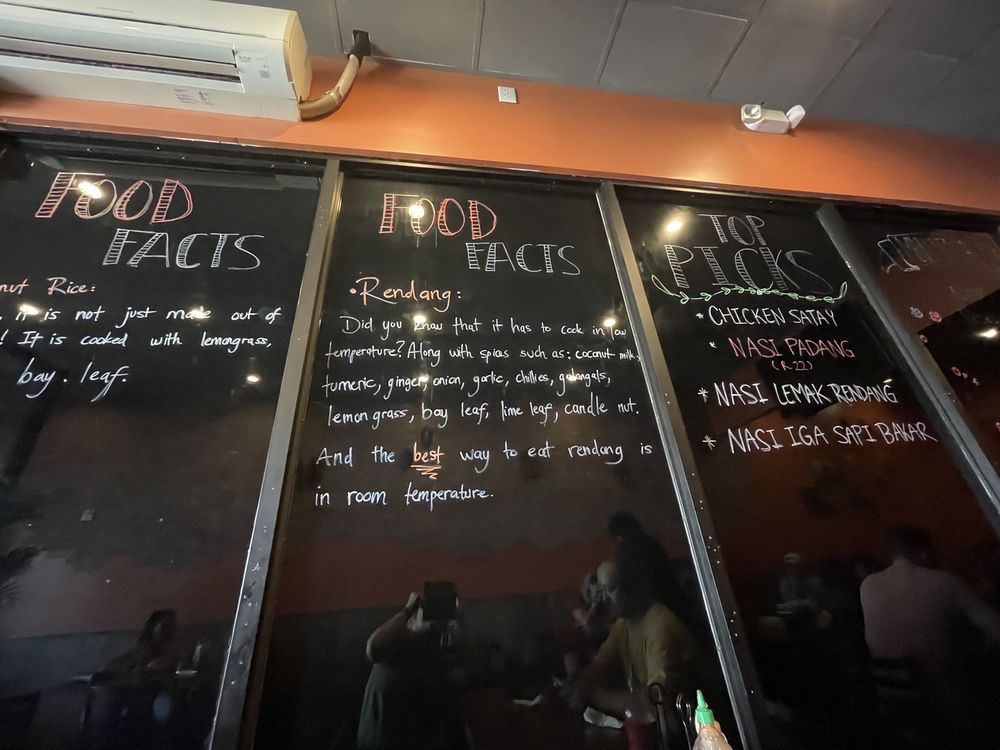 FOOD
FACTS
nut Rice:
it is not just made out of
! It is cooked with lemongrass,
bay. leaf.
FOOD
FACTS
•Rendang:
Did you know that it has to cook in low
temperature? Along with spices such as: coconut milk,
tumeric, ginger, onion, garlic, chillies, galangals,
lemon grass, bay leaf, lime leaf, candle nut.
And the best way to eat rendang is
in room temperature.
TOP
PICKS
* CHICKEN SATAY
* NASI PADANG
(R.22)
* NASI LEMAK RENDANG
* NASI IGA SAPI BAKAR